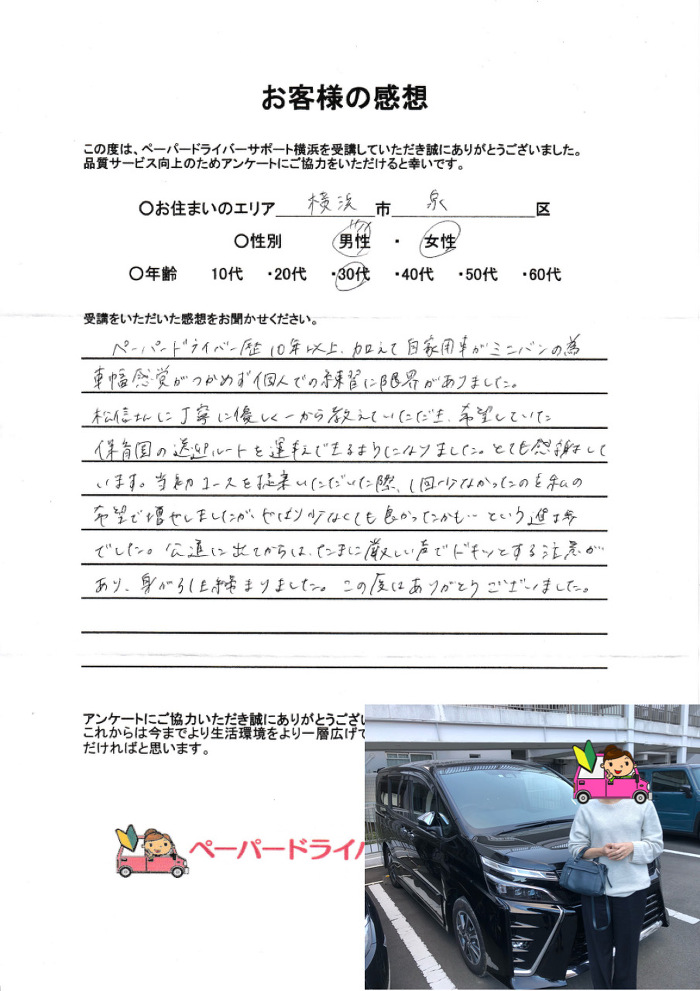 お客様の感想
この度は、ペーパードライバーサポート横浜を受講していただき誠にありがとうございました。
品質サービス向上のためアンケートにご協力をいただけると幸いです。
〇お住まいのエリア 横浜 市 泉 区
〇性別 男性 ・ 女性
〇年齢 10代 ・20代 ・30代 ・40代 ・50代 ・60代
受講をいただいた感想をお聞かせください。
ペーパードライバー歴10年以上、加えて自家用車がミニバンの為
車幅感覚がつかめず個人での練習に限界がありました。
松信さんに丁寧に優しく一から教えていただき、希望していた
保育園の送迎ルートを運転できるようになりました。とても感謝して
います。当初コースを提案いただいた際、1回少なかったのを私の
希望で増やしましたが、やはり少なくても良かったかも…という進歩
でした。公道に出てからは、たまに厳しい声でドキッとする注意が
あり、身が引き締まりました。この度はありがとうございました。
アンケートにご協力いただき誠にありがとうござい
これからは今までより生活環境をより一層広げて
だければと思います。
ペーパードライバ